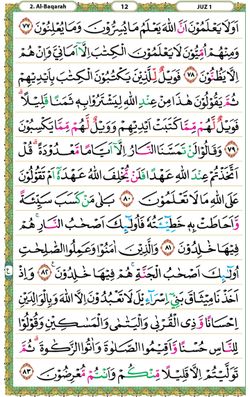 2. Al-Baqarah 12 JUZ 1
اَوَلَا يَعْلَمُوْنَ اَنَّ اللّٰهَ يَعْلَمُ مَا يُسِرُّوْنَ وَمَا يُعْلِنُوْنَ ٧٧
وَمِنْهُمْ اُمِّيُّوْنَ لَا يَعْلَمُوْنَ الْكِتٰبَ اِلَّآ اَمَانِيَّ وَاِنْ هُمْ
اِلَّا يَظُنُّوْنَ ٧٨ فَوَيْلٌ لِّلَّذِيْنَ يَكْتُبُوْنَ الْكِتٰبَ بِاَيْدِيْهِمْ
ثُمَّ يَقُوْلُوْنَ هٰذَا مِنْ عِنْدِ اللّٰهِ لِيَشْتَرُوْا بِهٖ ثَمَنًا قَلِيْلًا ۗ
فَوَيْلٌ لَّهُمْ مِّمَّا كَتَبَتْ اَيْدِيْهِمْ وَوَيْلٌ لَّهُمْ مِّمَّا يَكْسِبُوْنَ
٧٩ وَقَالُوْا لَنْ تَمَسَّنَا النَّارُ اِلَّآ اَيَّامًا مَّعْدُوْدَةً ۗ قُلْ
اَتَّخَذْتُمْ عِنْدَ اللّٰهِ عَهْدًا فَلَنْ يُّخْلِفَ اللّٰهُ عَهْدَهٗٓ اَمْ تَقُوْلُوْنَ
عَلَى اللّٰهِ مَا لَا تَعْلَمُوْنَ ٨٠ بَلٰى مَنْ كَسَبَ سَيِّئَةً
وَّاَحَاطَتْ بِهٖ خَطِيْۤـَٔتُهٗ فَاُولٰۤىِٕكَ اَصْحٰبُ النَّارِ ۚ هُمْ
فِيْهَا خٰلِدُوْنَ ٨١ وَالَّذِيْنَ اٰمَنُوْا وَعَمِلُوا الصّٰلِحٰتِ
اُولٰۤىِٕكَ اَصْحٰبُ الْجَنَّةِ ۚ هُمْ فِيْهَا خٰلِدُوْنَ ٨٢ وَاِذْ
اَخَذْنَا مِيْثَاقَ بَنِيْٓ اِسْرَاۤءِيْلَ لَا تَعْبُدُوْنَ اِلَّا اللّٰهَ وَبِالْوَالِدَيْنِ
اِحْسَانًا وَّذِى الْقُرْبٰى وَالْيَتٰمٰى وَالْمَسٰكِيْنِ وَقُوْلُوْا
لِلنَّاسِ حُسْنًا وَّاَقِيْمُوا الصَّلٰوةَ وَاٰتُوا الزَّكٰوةَ ۗ ثُمَّ
تَوَلَّيْتُمْ اِلَّا قَلِيْلًا مِّنْكُمْ وَاَنْتُمْ مُّعْرِضُوْنَ ٨٣